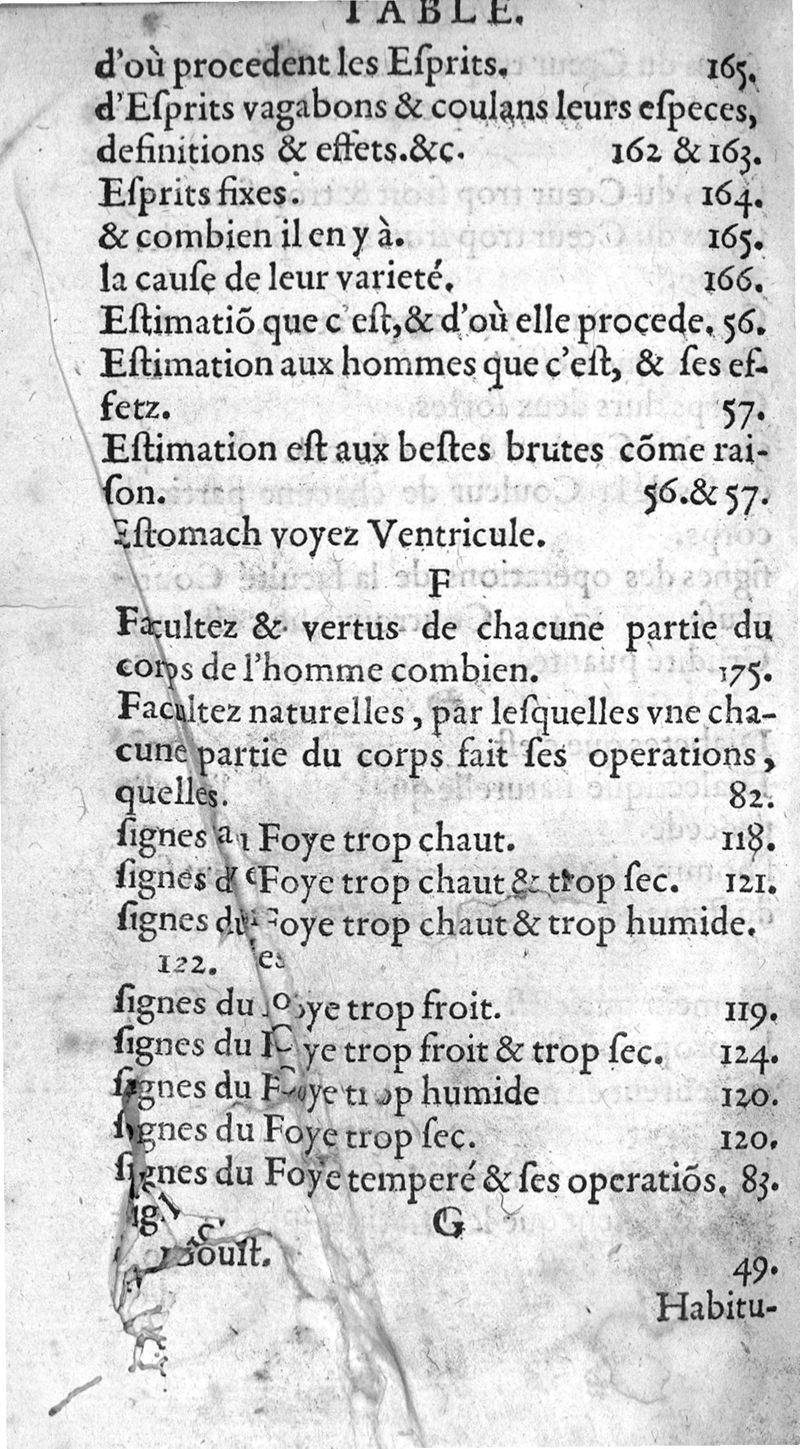 TABLE.
d'où procedent les Eſprits. 165.
d'Eſprits vagabons & coulans leurs eſpeces,
definitions & effets.&c. 162 & 163.
Eſprits fixes. 164.
& combien il en y à. 165.
la cauſe de leur varieté. 166.
Eſtimatiõ que c'eſt,& d'où elle procede. 56.
Eſtimation aux hommes que c'eſt, & ſes ef-
fetz. 57.
Eſtimation eſt aux beſtes brutes cõme rai-
ſon. 56.& 57.
Eſtomach voyez Ventricule.
F
Facultez & vertus de chacune partie du
corps de l'homme combien. 175.
Facultez naturelles, par leſquelles vne cha-
cune partie du corps fait ſes operations,
quelles. 82.
ſignes Foye trop chaut. 118.
ſignes Foye trop chaut & trop ſec. 121.
ſignes du Foye trop chaut & trop humide.
122.
ſignes du Foye trop froit. 119.
ſignes du Foye trop froit & trop ſec. 124.
ſignes du Foye trop humide 120.
ſignes du Foye trop ſec. 120.
ſignes du Foye temperé & ſes operatiõs. 83.
G
Gouſt. 49.
Habitu-